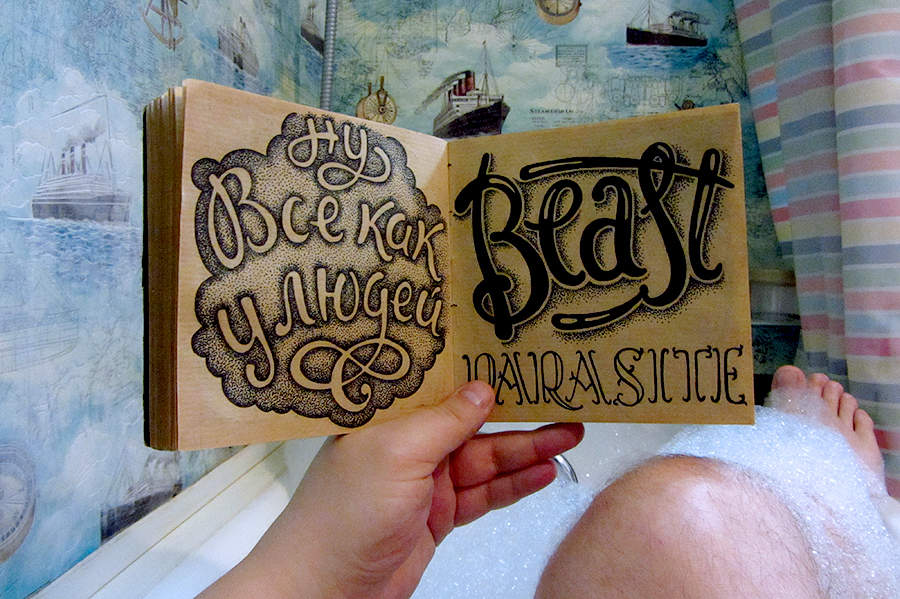 ну
Все как
у людей
Beast
PARASITE